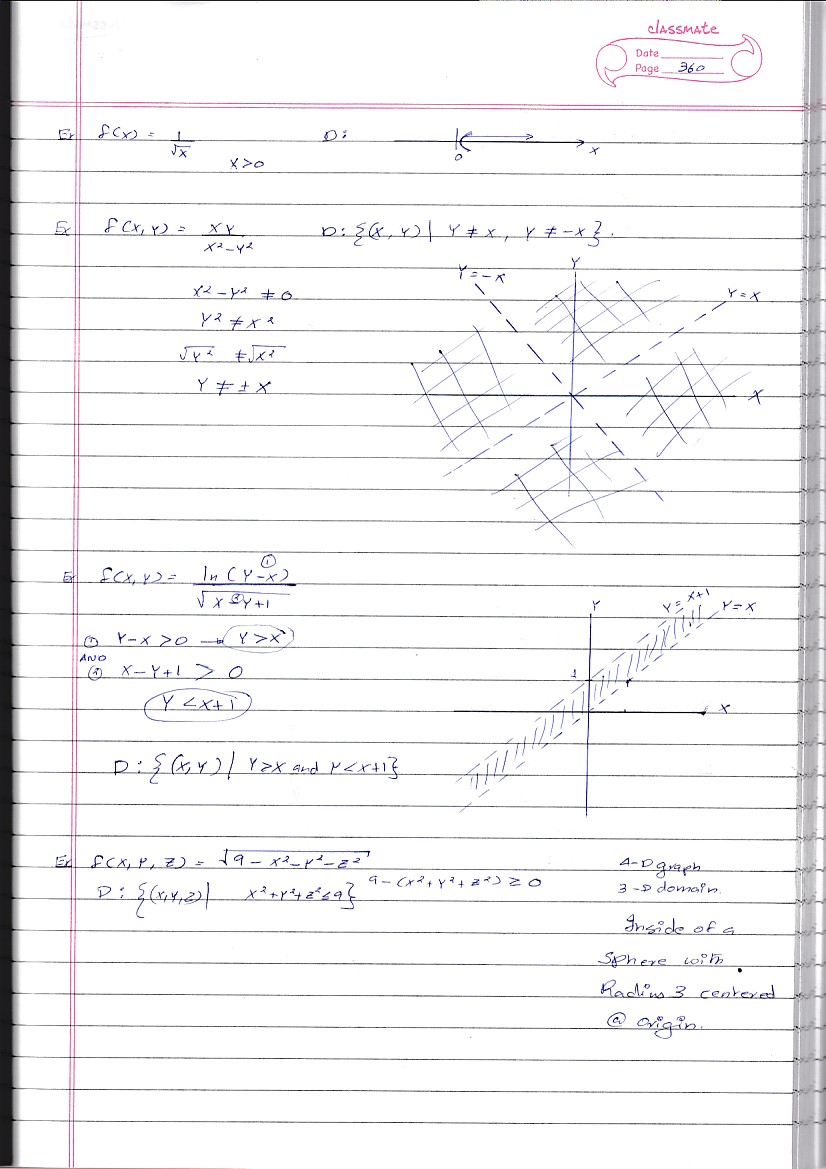 classmate
Date
Page 360
Ex f(x) = 1/√x D:
0 x
x>0
Ex f(x,y) = xy/(x²-y²) D: {(x,y) | y ≠ x, y ≠ -x}.
y=-x y y=x
x²-y² ≠ 0
y² ≠ x²
√y² ≠ √x²
y ≠ ± x
x
Ex f(x,y) = ln(y-x) ①/√x-y+1 ②
y y=x+1 y=x
① y-x >0 → y>x
AND
② x-y+1 > 0
1
y<x+1
x
D: {(x,y) | y>x and y<x+1}
Ex f(x,y,z) = √9-x²-y²-z²
9-(x²+y²+z²) ≥ 0
D: {(x,y,z) | x²+y²+z²≤9}
4-D graph
3-D domain.
Inside of a
sphere with
Radius 3 centered
@ origin.